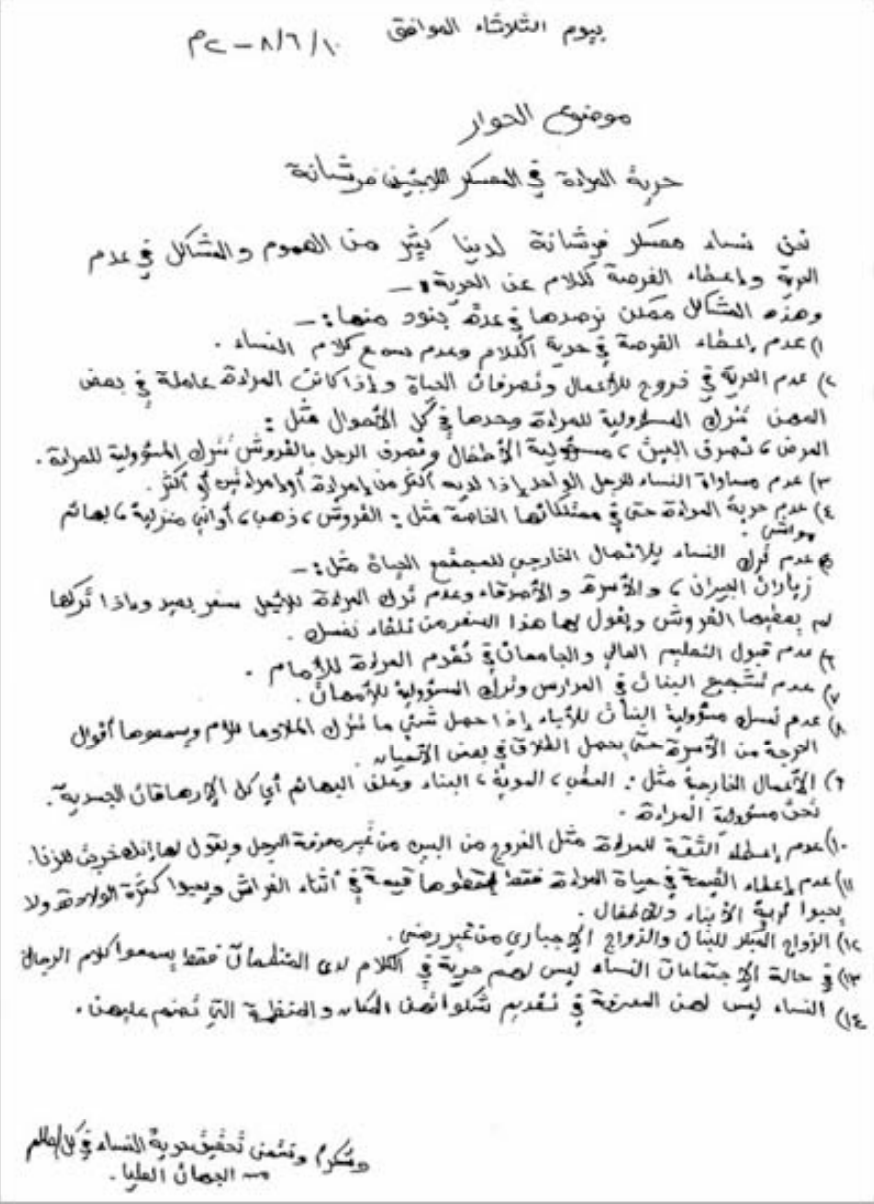 بيوم الثلاثاء الموافق ١٠/٦/٨ – ٢م
موضوع الحوار
حرية المراءة في المعسكر اللاجئين فرشانة
نحن نساء معسكر فرشانة لدينا كثير من الهموم والمشاكل في عدم
الحرية وإعطاء الفرصة للكلام عن الحرية :ـ
وهذه المشاكل ممكن نرصدها في عدة بنود منها :ـ
١) عدم إعطاء الفرصة في حرية الكلام وعدم سمع كلام النساء .
٢) عدم الحرية في خروج للأعمال وتصرفات الحياة وإذا كانت المراءة عاملة في بعض
المهن تترك المسؤولية للمراءة وحدها في كل الأحوال مثل :
المرض ، تصرف البيت ، مسؤولية الأطفال وتصرف الرجل بالقروش تترك المسؤولية للمراءة .
٣) عدم مساواة النساء للرجل الواحد إذا لديه أكثر من إمراءة أو إمراءتين أو أكثر .
٤) عدم حرية المراءة حتى في ممتلكاتها الخاصة مثل : القروش ، ذهب ، أواني منزلية ، بهائم
مواشي .
٥) عدم ترك النساء بالاتصال الخارجي للمجتمع الحياة مثل :ـ
زيارات الجيران ، والأسرة والأصدقاء وعدم ترك المراءة للأهل سفر بعيد وإذا تركها
لم يعطيها القروش ويقول لها هذا السفر من تلقاء نفسك .
٦) عدم قبول التعليم العالي والجامعات في تقدم المراءة للأمام .
٧) عدم تشجيع البنات في المدارس وترك المسؤولية للأمهات .
٨) عدم تمسك مسؤولية البنات للأباء إذا حصل شيء ما تترك الملاوها للأم ويسمعوها أقوال
الحرجة من الأسرة حتى يحصل الطلاق في بعض الأحيان .
٩) الأعمال الخارجة مثل : الحطب ، الموية ، البناء وعلف البهائم أي كل الإرهاقات الجسدية .
نحن مسؤولية المراءة .
١٠) عدم إعطاء الثقة للمراءة مثل الخروج من البيت من غير معرفة الرجل ويقول لها إنك خرجت للزنا .
١١) عدم إعطاء القيمة في حياة المراءة فقط يعطوها قيمة في أثناء الفراش ويحبوا كثرة الولادة ولا
يحبوا تربية الأبناء والأطفال .
١٢) الزواج المبكر للبنات والزواج الإجباري من غير رضى .
١٣) في حالة الإجتماعات النساء ليس لهم حرية في الكلام لدى المنظمات فقط يسمعوا كلام الرجال
١٤) النساء ليس لهن المعرفة في تقديم شكواتهن المكان والمنظمة التي تهتم عليهن .
وشكراً ونتمنى تحقيق حرية النساء في كل
من الجهات العليا .